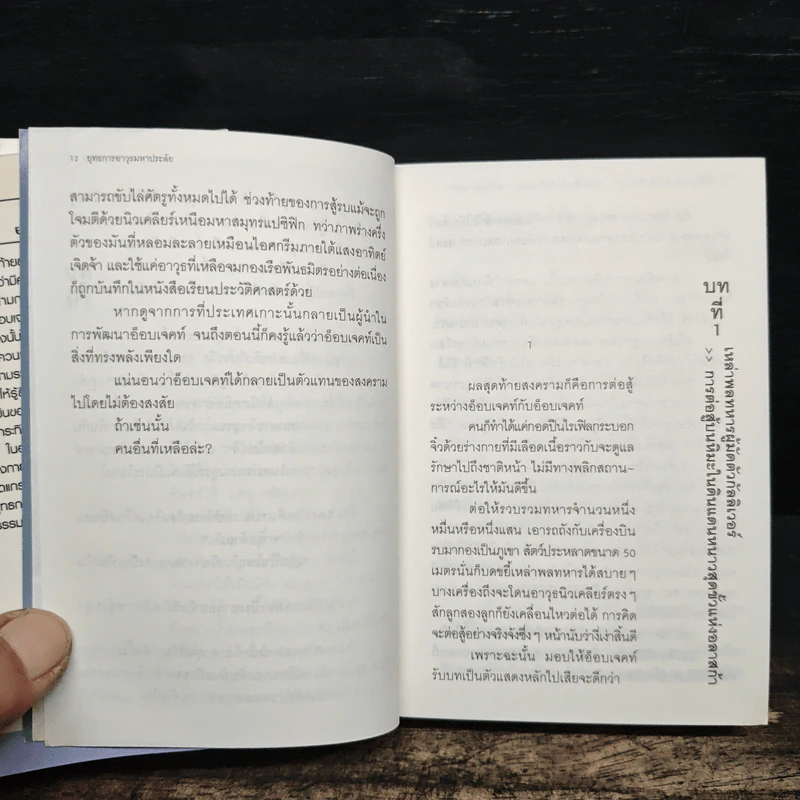 ๑๖ ยุทธการอาวุธมหาประลัย
สามารถขับไล่ศัตรูทั้งหมดไปได้ ช่วงท้ายของการสู้รบแม้จะถูก
โจมตีด้วยนิวเคลียร์เหนือมหาสมุทรแปซิฟิก ทว่าภาพร่างครึ่ง
ตัวของมันที่หลอมละลายเหมือนไอศกรีมภายใต้แสงอาทิตย์
เจิดจ้า และใช้แค่อาวุธที่เหลือจมกองเรือพันธมิตรอย่างต่อเนื่อง
ก็ถูกบันทึกในหนังสือเรียนประวัติศาสตร์ด้วย
หากดูจากการที่ประเทศเกาะนั้นกลายเป็นผู้นำใน
การพัฒนาอ็อบเจคท์ จนถึงตอนนี้ก็คงรู้แล้วว่าอ็อบเจคท์เป็น
สิ่งที่ทรงพลังเพียงใด
แน่นอนว่าอ็อบเจคท์ได้กลายเป็นตัวแทนของสงคราม
ไปโดยไม่ต้องสงสัย
ถ้าเช่นนั้น
คนอื่นที่เหลือล่ะ?
บท
ที่
๑
เหล่าพลทหารผู้มัดตัวกัลลิเวอร์
>> การต่อสู้บนหิมะในดินแดนหนาวสุดขั้วแห่งอลาสก้า
๑
ผลสุดท้ายสงครามก็คือการต่อสู้
ระหว่างอ็อบเจคท์กับอ็อบเจคท์
คนก็ทำได้แค่กอดปืนไรเฟิลกระบอก
จิ๋วด้วยร่างกายที่มีเลือดเนื้อราวกับจะดูแล
รักษาไปถึงชาติหน้า ไม่มีทางพลิกสถาน-
การณ์อะไรให้มันดีขึ้น
ต่อให้รวบรวมทหารจำนวนหนึ่ง
หมื่นหรือหนึ่งแสน เอารถถังกับเครื่องบิน
รบมากองเป็นภูเขา สัตว์ประหลาดขนาด 50
เมตรนั่นก็บดขยี้เหล่าพลทหารได้สบายๆ
บางเครื่องถึงจะโดนอาวุธนิวเคลียร์ตรงๆ
สักลูกสองลูกก็ยังเคลื่อนไหวต่อได้ การคิด
จะต่อสู้อย่างจริงจังซึ่งๆ หน้านับว่างี่เง่าสิ้นดี
เพราะฉะนั้น มอบให้อ็อบเจคท์
รับบทเป็นตัวแสดงหลักไปเสียจะดีกว่า